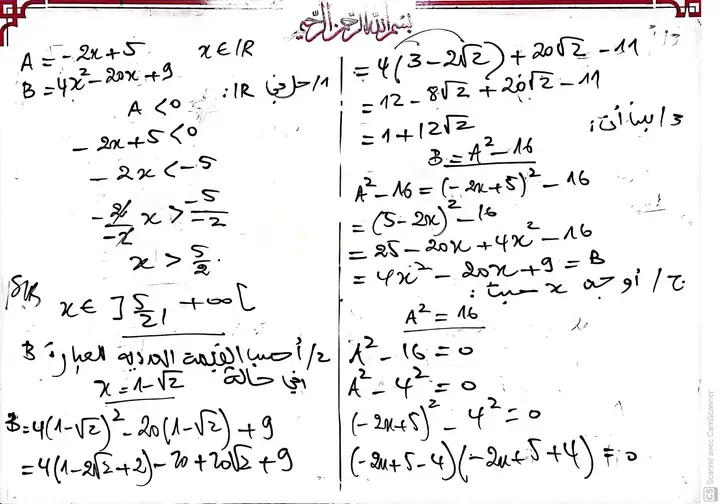 بسم الله الرحمن الرحيم
A = -2x+5    x∈IR
B = 4x²-20x+9
1/ حل في IR:
A < 0
-2x+5<0
-2x<-5
-2/-2 x > -5/-2
x > 5/2.
S_IR x∈ ]5/2, +∞[
2/ أحسب القيمة العددية للعبارة B
في حالة x=1-√2
B=4(1-√2)²-20(1-√2)+9
=4(1-2√2+2)-20+20√2+9
=4(3-2√2)+20√2-11
=12-8√2+20√2-11
=1+12√2
3/ بين أن:
B=A²-16
A²-16=(-2x+5)²-16
=(5-2x)²-16
=25-20x+4x²-16
=4x²-20x+9=B
ج/ أوجد x حيث:
A²=16
A²-16=0
A²-4²=0
(-2x+5)²-4²=0
(-2x+5-4)(-2x+5+4)=0
CS Scanné avec CamScanner